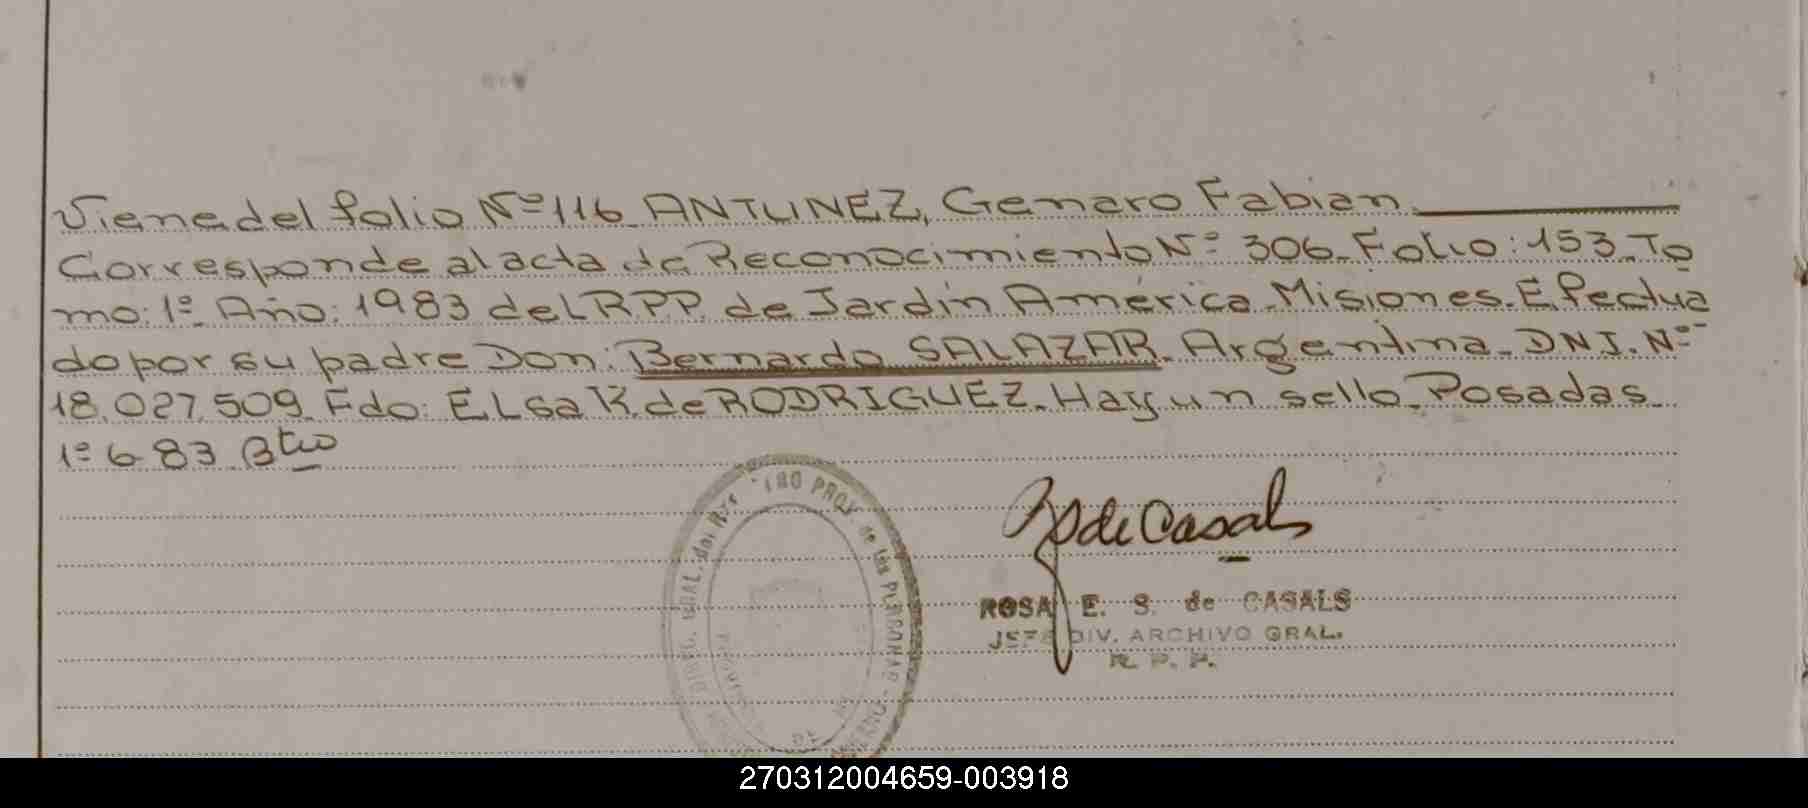 Viene del folio Nº 116 ANTUNEZ, Genaro Fabian.
Corresponde al acta de Reconocimiento Nº 306. Folio: 153. To
mo: 1º. Año: 1983 del R.P.P. de Jardín América. Misiones. Efectua
do por su padre Don: Bernardo SALAZAR. Argentina. DNI. Nº
18.027.509. Fdo: Elsa K. de RODRIGUEZ. Hay un sello. Posadas.
1º 6 83
de Casals
ROSA E. S. de CASALS
JEFE DIV. ARCHIVO GRAL.
R. P. P.
de las PERSONAS
270312004659-003918